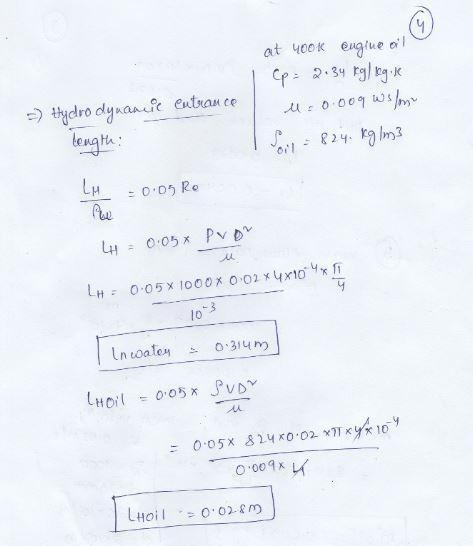 4
at 400K engine oil
Cp = 2.34 kg/kg.K
μ = 0.009 Ws/m²
ρoil = 824. kg/m3
=) Hydrodynamic entrance
length:
LH/ = 0.05 Re
LH = 0.05 × ρVD²/μ
LH = 0.05×1000×0.02×4×10⁻⁴×π/4 / 10⁻³
Lnwater = 0.314m
LHOil = 0.05× ρVD²/μ
= 0.05× 824×0.02×π×4×10⁻⁴ / 0.009×4
LHoil = 0.028m